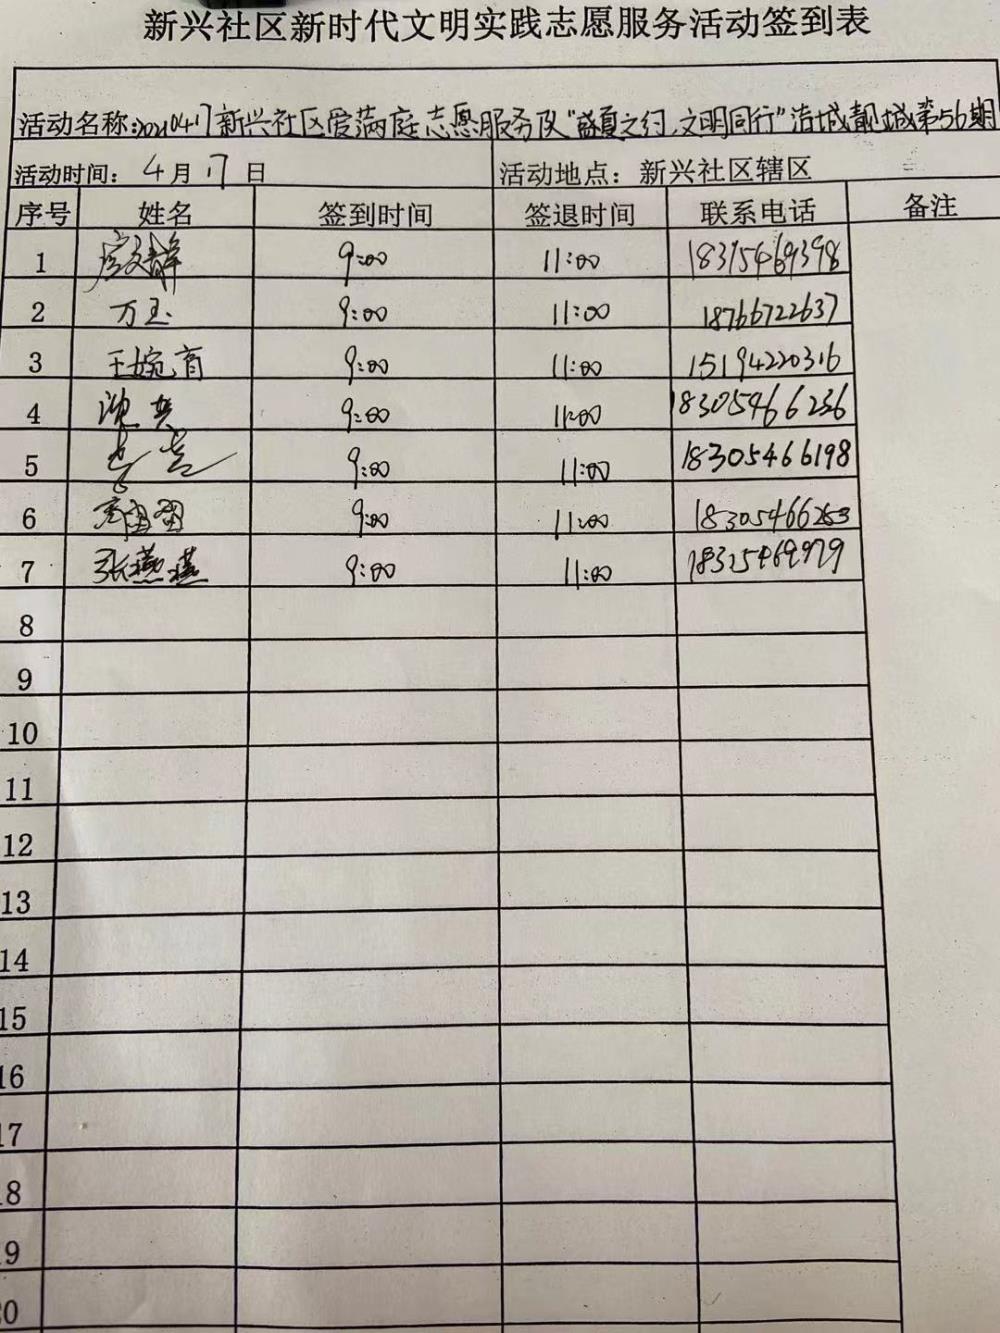 新兴社区新时代文明实践志愿服务活动签到表
活动名称:20210417新兴社区爱满庭志愿服务队“盛夏之约,文明同行”清城靓城第56期
活动时间: 4月17日 活动地点: 新兴社区辖区
序号 姓名 签到时间 签退时间 联系电话 备注
1 9:00 11:00 18315469398
2 万玉 9:00 11:00 18766722637
3 王婉育 9:00 11:00 15194220316
4 9:00 11:00 18305466236
5 9:00 11:00 18305466198
6 9:00 11:00 18305466253
7 张燕燕 9:00 11:00 18325469979
8
9
10
11
12
13
14
15
16
17
18
19
20